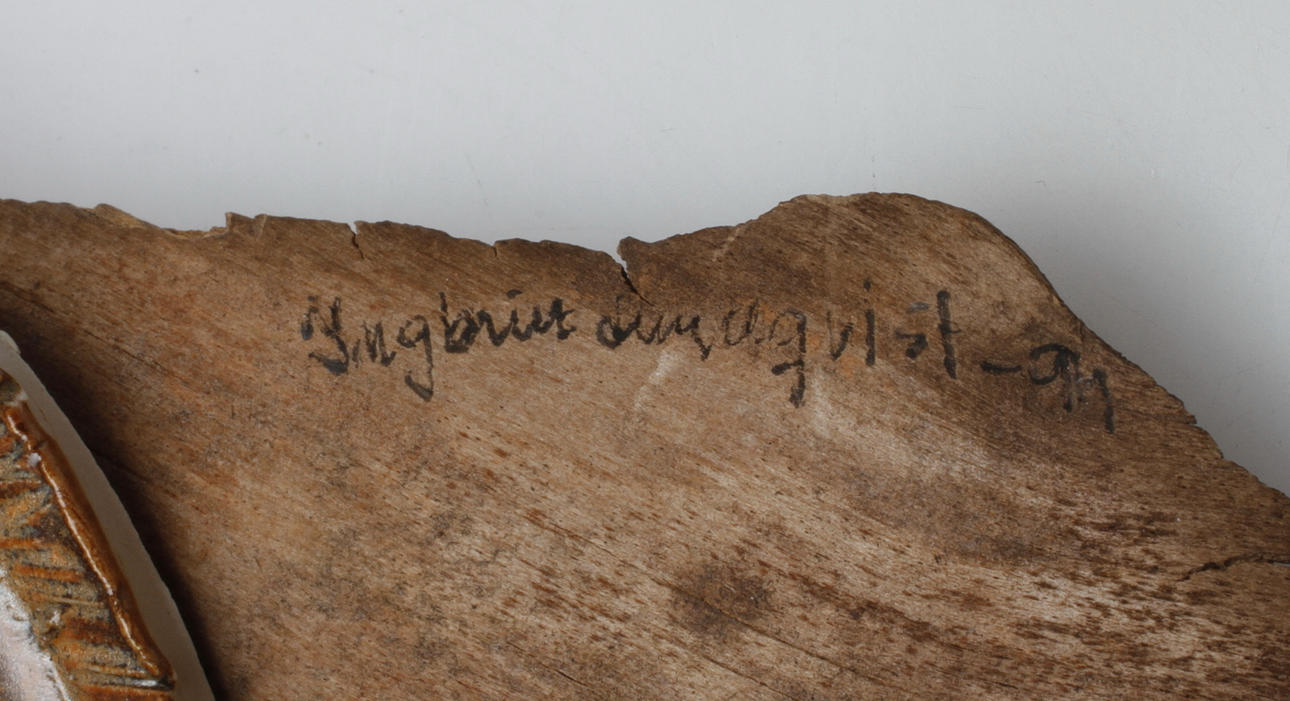 Ingbritt Sundqvist -94